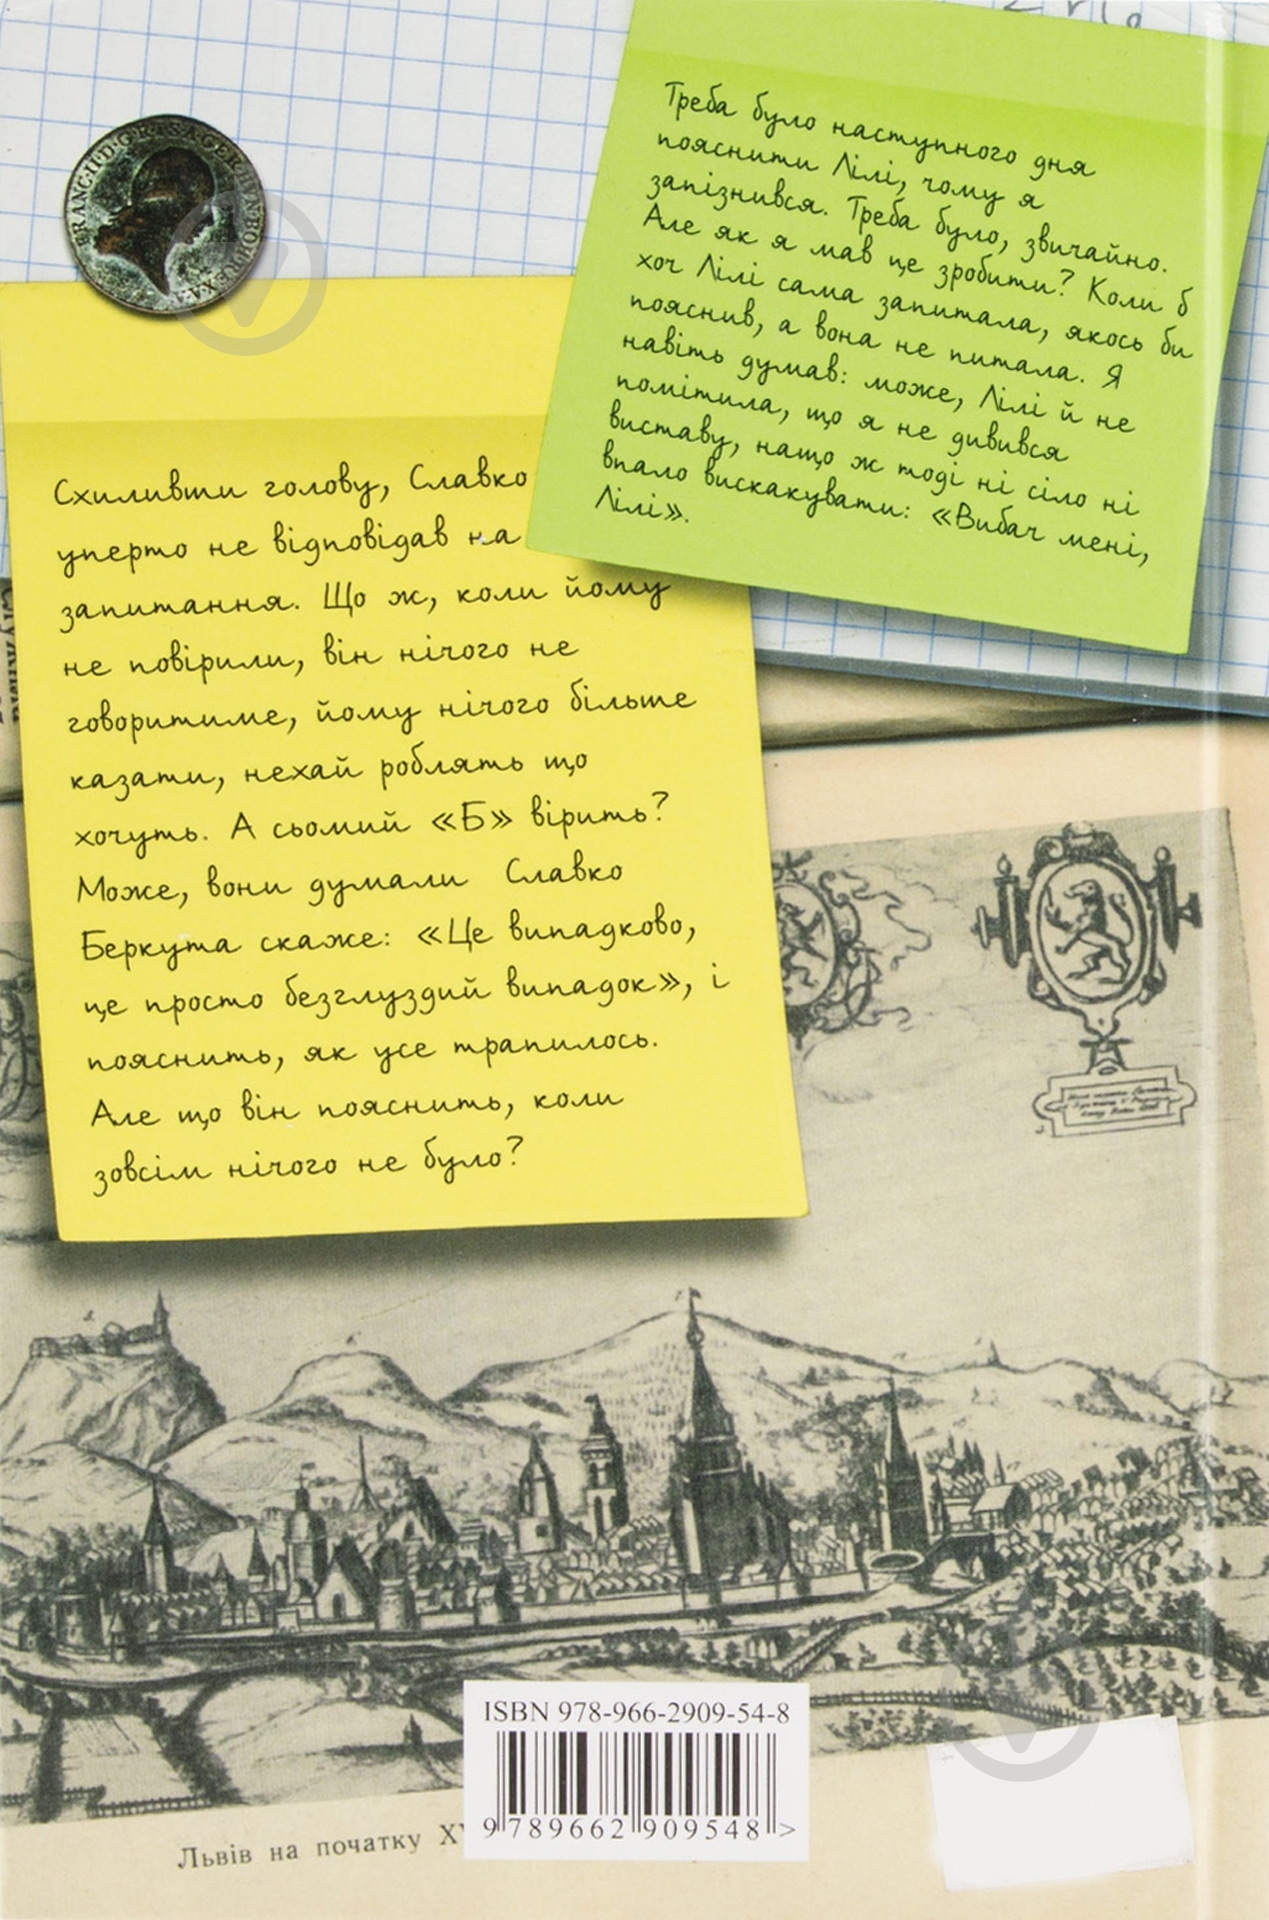 FRANC·II·D·G·R·I·S·A·GE
Треба було наступного дня
пояснити Лілі, чому я
запізнився. Треба було, звичайно.
Але як я мав це зробити? Коли б
хоч Лілі сама запитала, якось би
пояснив, а вона не питала. Я
навіть думав: може, Лілі й не
помітила, що я не дивився
виставу, нащо ж тоді ні сіло ні
впало вискакувати: «Вибач мені,
Лілі».
Схиливши голову, Славко
уперто не відповідав на
запитання. Що ж, коли йому
не повірили, він нічого не
говоритиме, йому нічого більше
казати, нехай роблять що
хочуть. А сьомий «Б» вірить?
Може, вони думали Славко
Беркута скаже: «Це випадково,
це просто безглуздий випадок», і
пояснить, як усе трапилось.
Але що він пояснить, коли
зовсім нічого не було?
ISBN 978-966-2909-54-8
9 789662 909548 >
Львів на початку